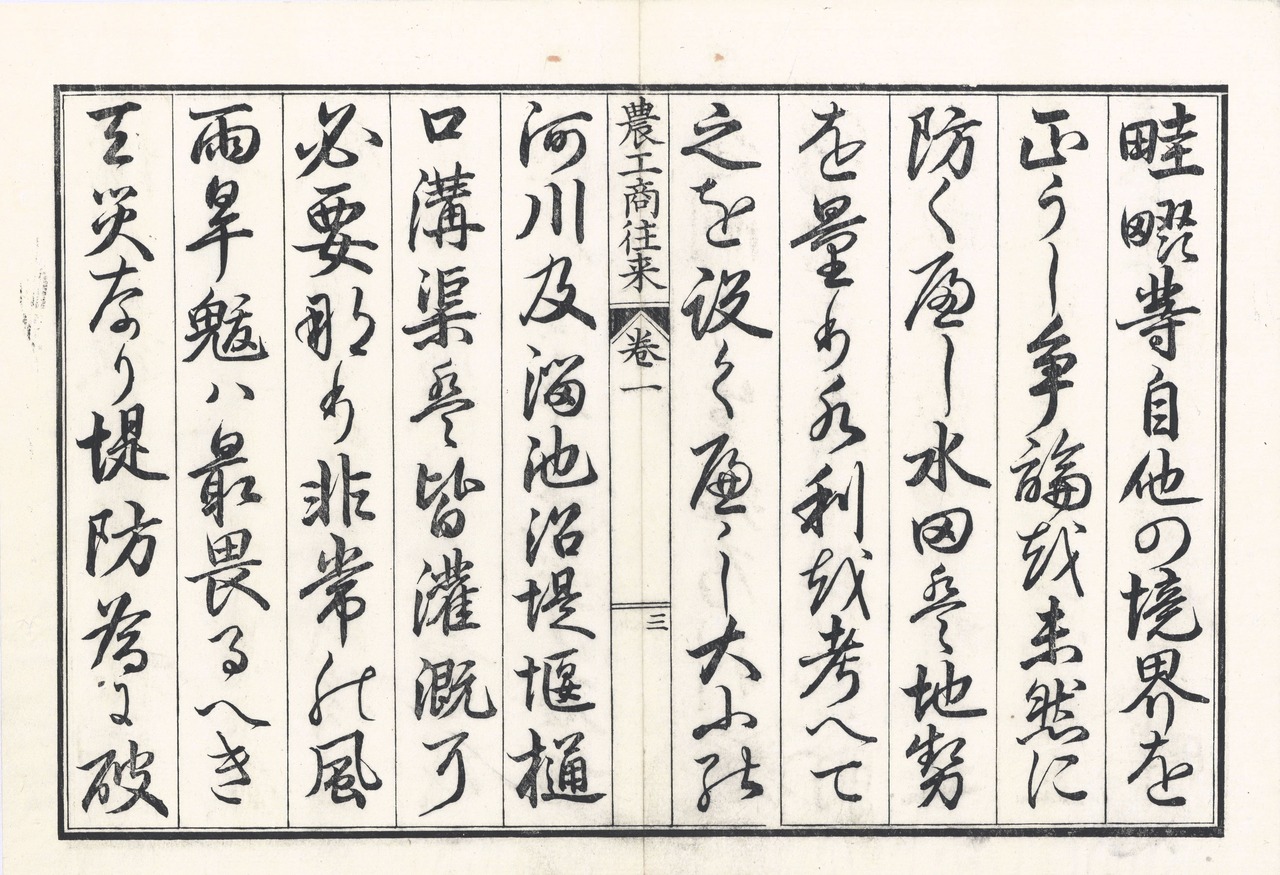 畦畷等自他の境界を
正うし争論を未然に
防くへし水田は地勢
を量り水利を考へて
之を設くへし大小の
農工商往来 卷一 三
河川及溜池沼堤堰樋
口溝渠は皆灌漑に
必要なり非常の風
雨旱魃ハ最畏るへき
天災なり堤防為に破